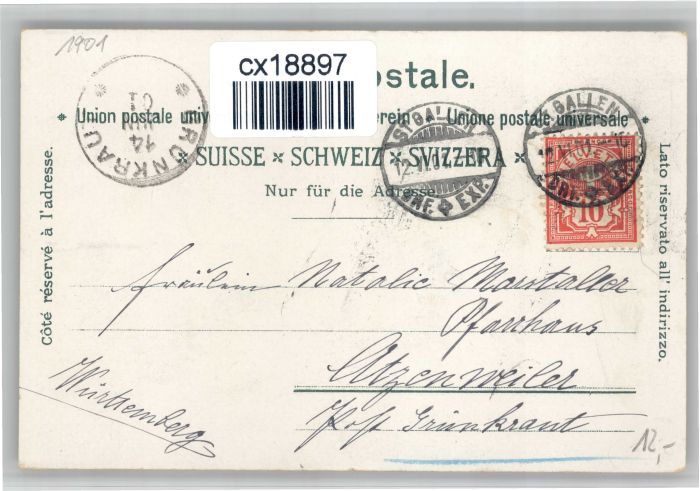 1901
cx18897
ostale.
* Union postale univ
erein * Unione postale universale *
* SUISSE * SCHWEIZ * SVIZZERA *
Nur für die Adresse.
Côté réservé à l'adresse.
Lato riservato all' indirizzo.
GRÜNKRAUT
14
JUN
01
ST. GALLEN
BRF. EXP.
ST. GALLEN
BRF. EXP.
HELVETIA
10
Fräulein Natalie Marstaller
Pfarrhaus
Atzenweiler
Post Grünkraut
Württemberg
12,-